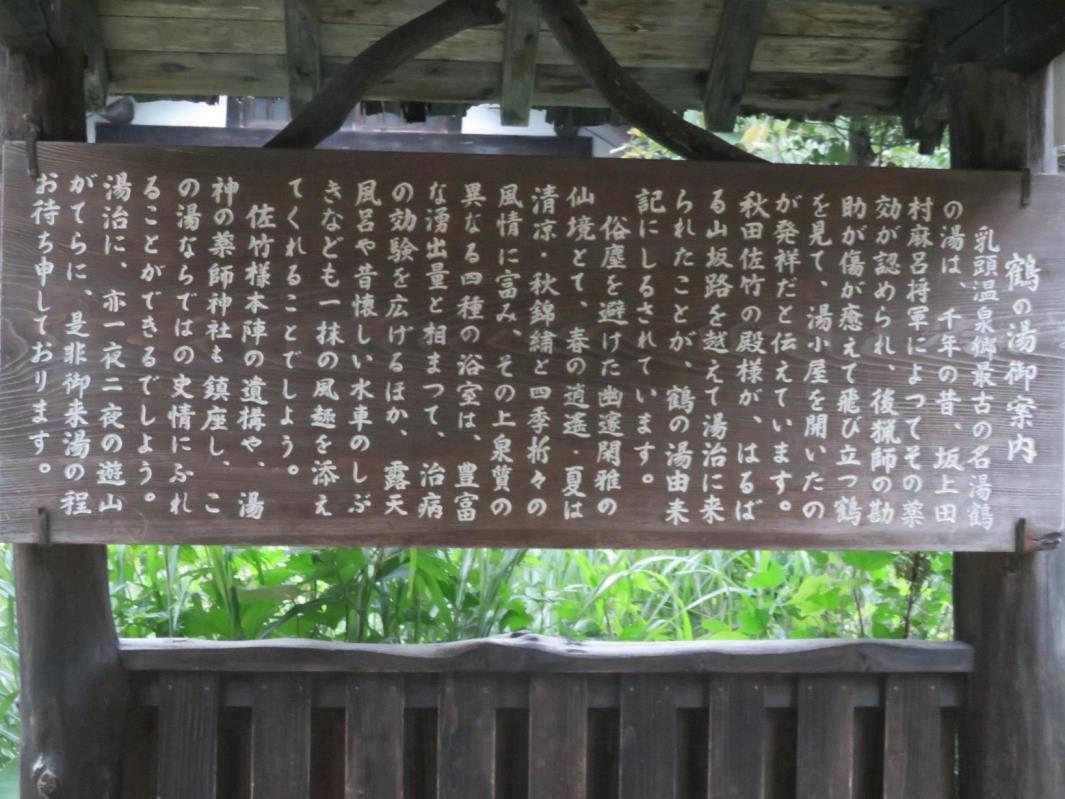 鶴の湯御案内
乳頭温泉郷最古の名湯鶴
の湯は、千年の昔、坂上田
村麻呂将軍によってその薬
効が認められ、後猟師の勘
助が傷が癒えて飛び立つ鶴
を見て、湯小屋を開いたの
が発祥だと伝えています。
秋田佐竹の殿様が、はるば
る山坂路を越えて湯治に来
られたことが、鶴の湯由来
記にしるされています。
俗塵を避けた幽邃閑雅の
仙境とて、春の逍遥・夏は
清涼・秋錦繍と四季折々の
風情に富み、その上泉質の
異なる四種の浴室は、豊富
な湧出量と相まって、治病
の効験を広げるほか、露天
風呂や昔懐しい水車のしぶ
きなども一抹の風趣を添え
てくれることでしょう。
佐竹様本陣の遺構や、湯
神の薬師神社も鎮座し、こ
の湯ならではの史情にふれ
ることができるでしょう。
湯治に、亦一夜二夜の遊山
がてらに、是非御来湯の程
お待ち申しております。